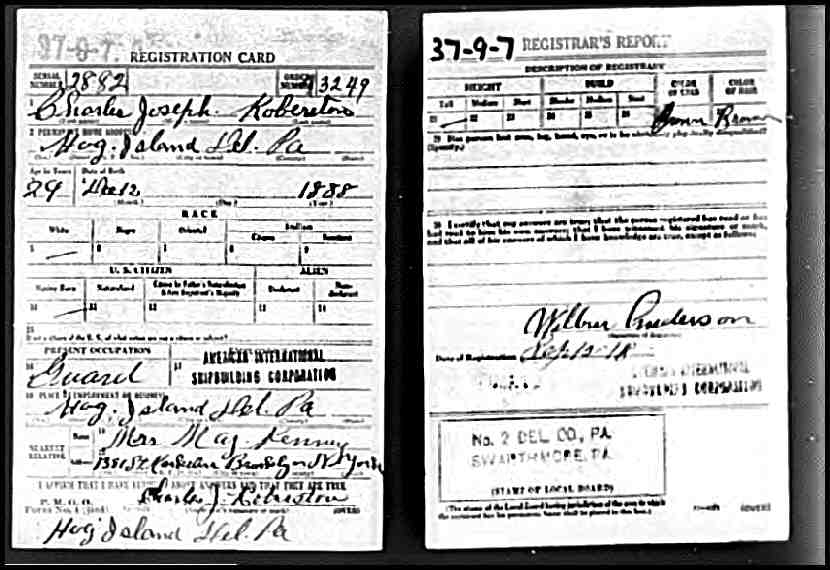 37-9-7
REGISTRATION CARD
SERIAL NUMBER 2882 ORDER NUMBER 3249
1 Charles Joseph
2 PERMANENT HOME ADDRESS
Hog Island Del. Pa
Age in Years Date of Birth
29 Dec 12 1888
(Month) (Day) (Year)
RACE
White Negro Oriental Indian
Citizen
5 6 7 8 9
U. S. CITIZEN ALIEN
Native Born Naturalized Citizen by Father's Naturalization Before Registrant's Majority Declarant Non-declarant
10 11 12 13 14
15
If not a citizen of the U. S., of what nation are you a citizen or subject?
PRESENT OCCUPATION
16 Guard 17 AMERICAN INTERNATIONAL
SHIPBUILDING CORPORATION
Hog Island Del. Pa
NEAREST RELATIVE Name Mrs May
Address Brooklyn N York
I AFFIRM THAT I HAVE VERIFIED ABOVE ANSWERS AND THAT THEY ARE TRUE
P. M. G. O.
Form No. 1 (Red) Charles J. (OVER)
Hog Island Del. Pa
37-9-7 REGISTRAR'S REPORT
DESCRIPTION OF REGISTRANT
HEIGHT BUILD COLOR OF EYES COLOR OF HAIR
Tall Medium Short Slender Medium Stout
21 22 23 24 25 26 Brown Brown
30 I certify that my answers are true; that the person registered has read or has
had read to him his own answers; that I have witnessed his signature or mark,
and that all of his answers of which I have knowledge are true, except as follows:
Wilbur Anderson
Date of Registration Sep 12-18
INTERNATIONAL
SHIPBUILDING CORPORATION
No. 2 DEL. CO., PA.
SWARTHMORE, PA.
(STAMP OF LOCAL BOARD)
(The stamp of the Local Board having jurisdiction of the area in which
the registrant has his permanent home shall be placed in this box.) (OVER)